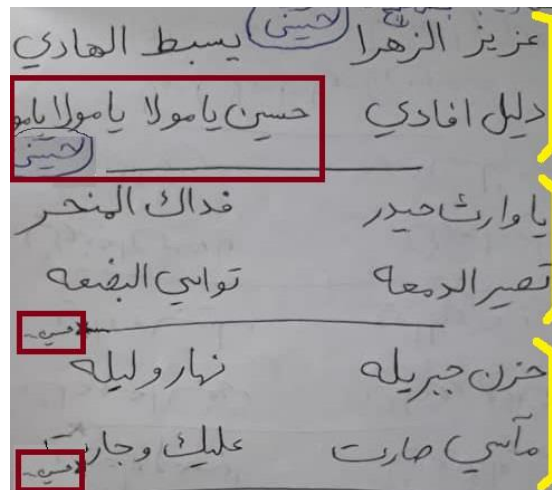 عزيز الزهرا يسبط الهادي
حسين
دليل افادي حسين يا مولا يا مولا يامو
حسين
يا وارث حيدر فداك المنحر
تصير الدمعه تواسي البضعه
حزن جبريله نهار وليله
مآسي صارت عليك وجارت